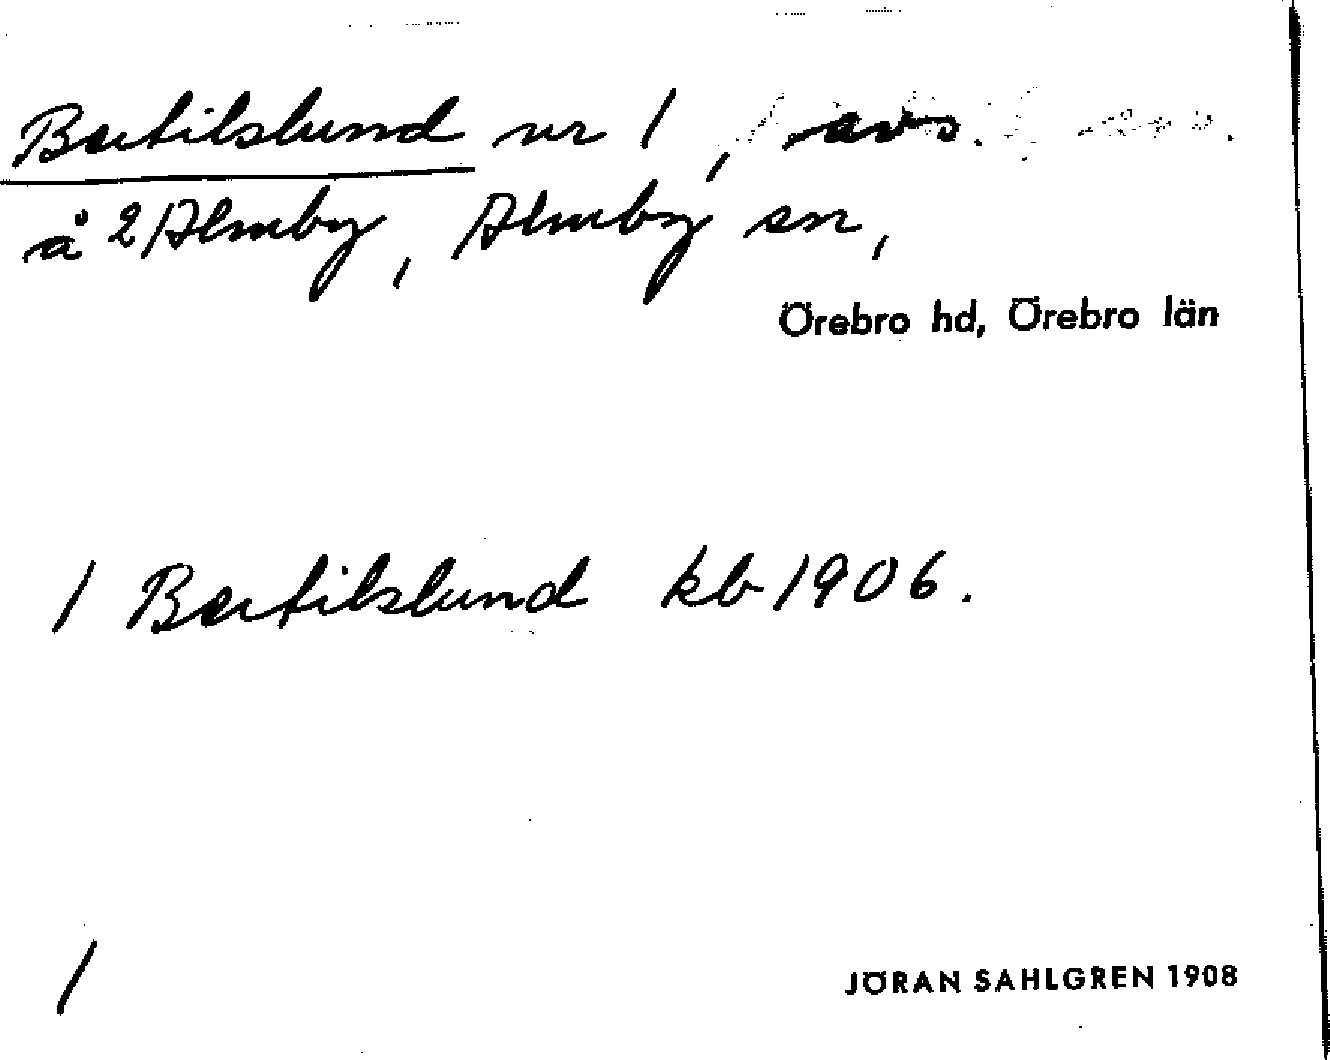 Bertilslund nr 1, avs.
å 2 Almby, Almby sn,
Örebro hd, Örebro län
1 Bertilslund kb 1906.
1
JÖRAN SAHLGREN 1908